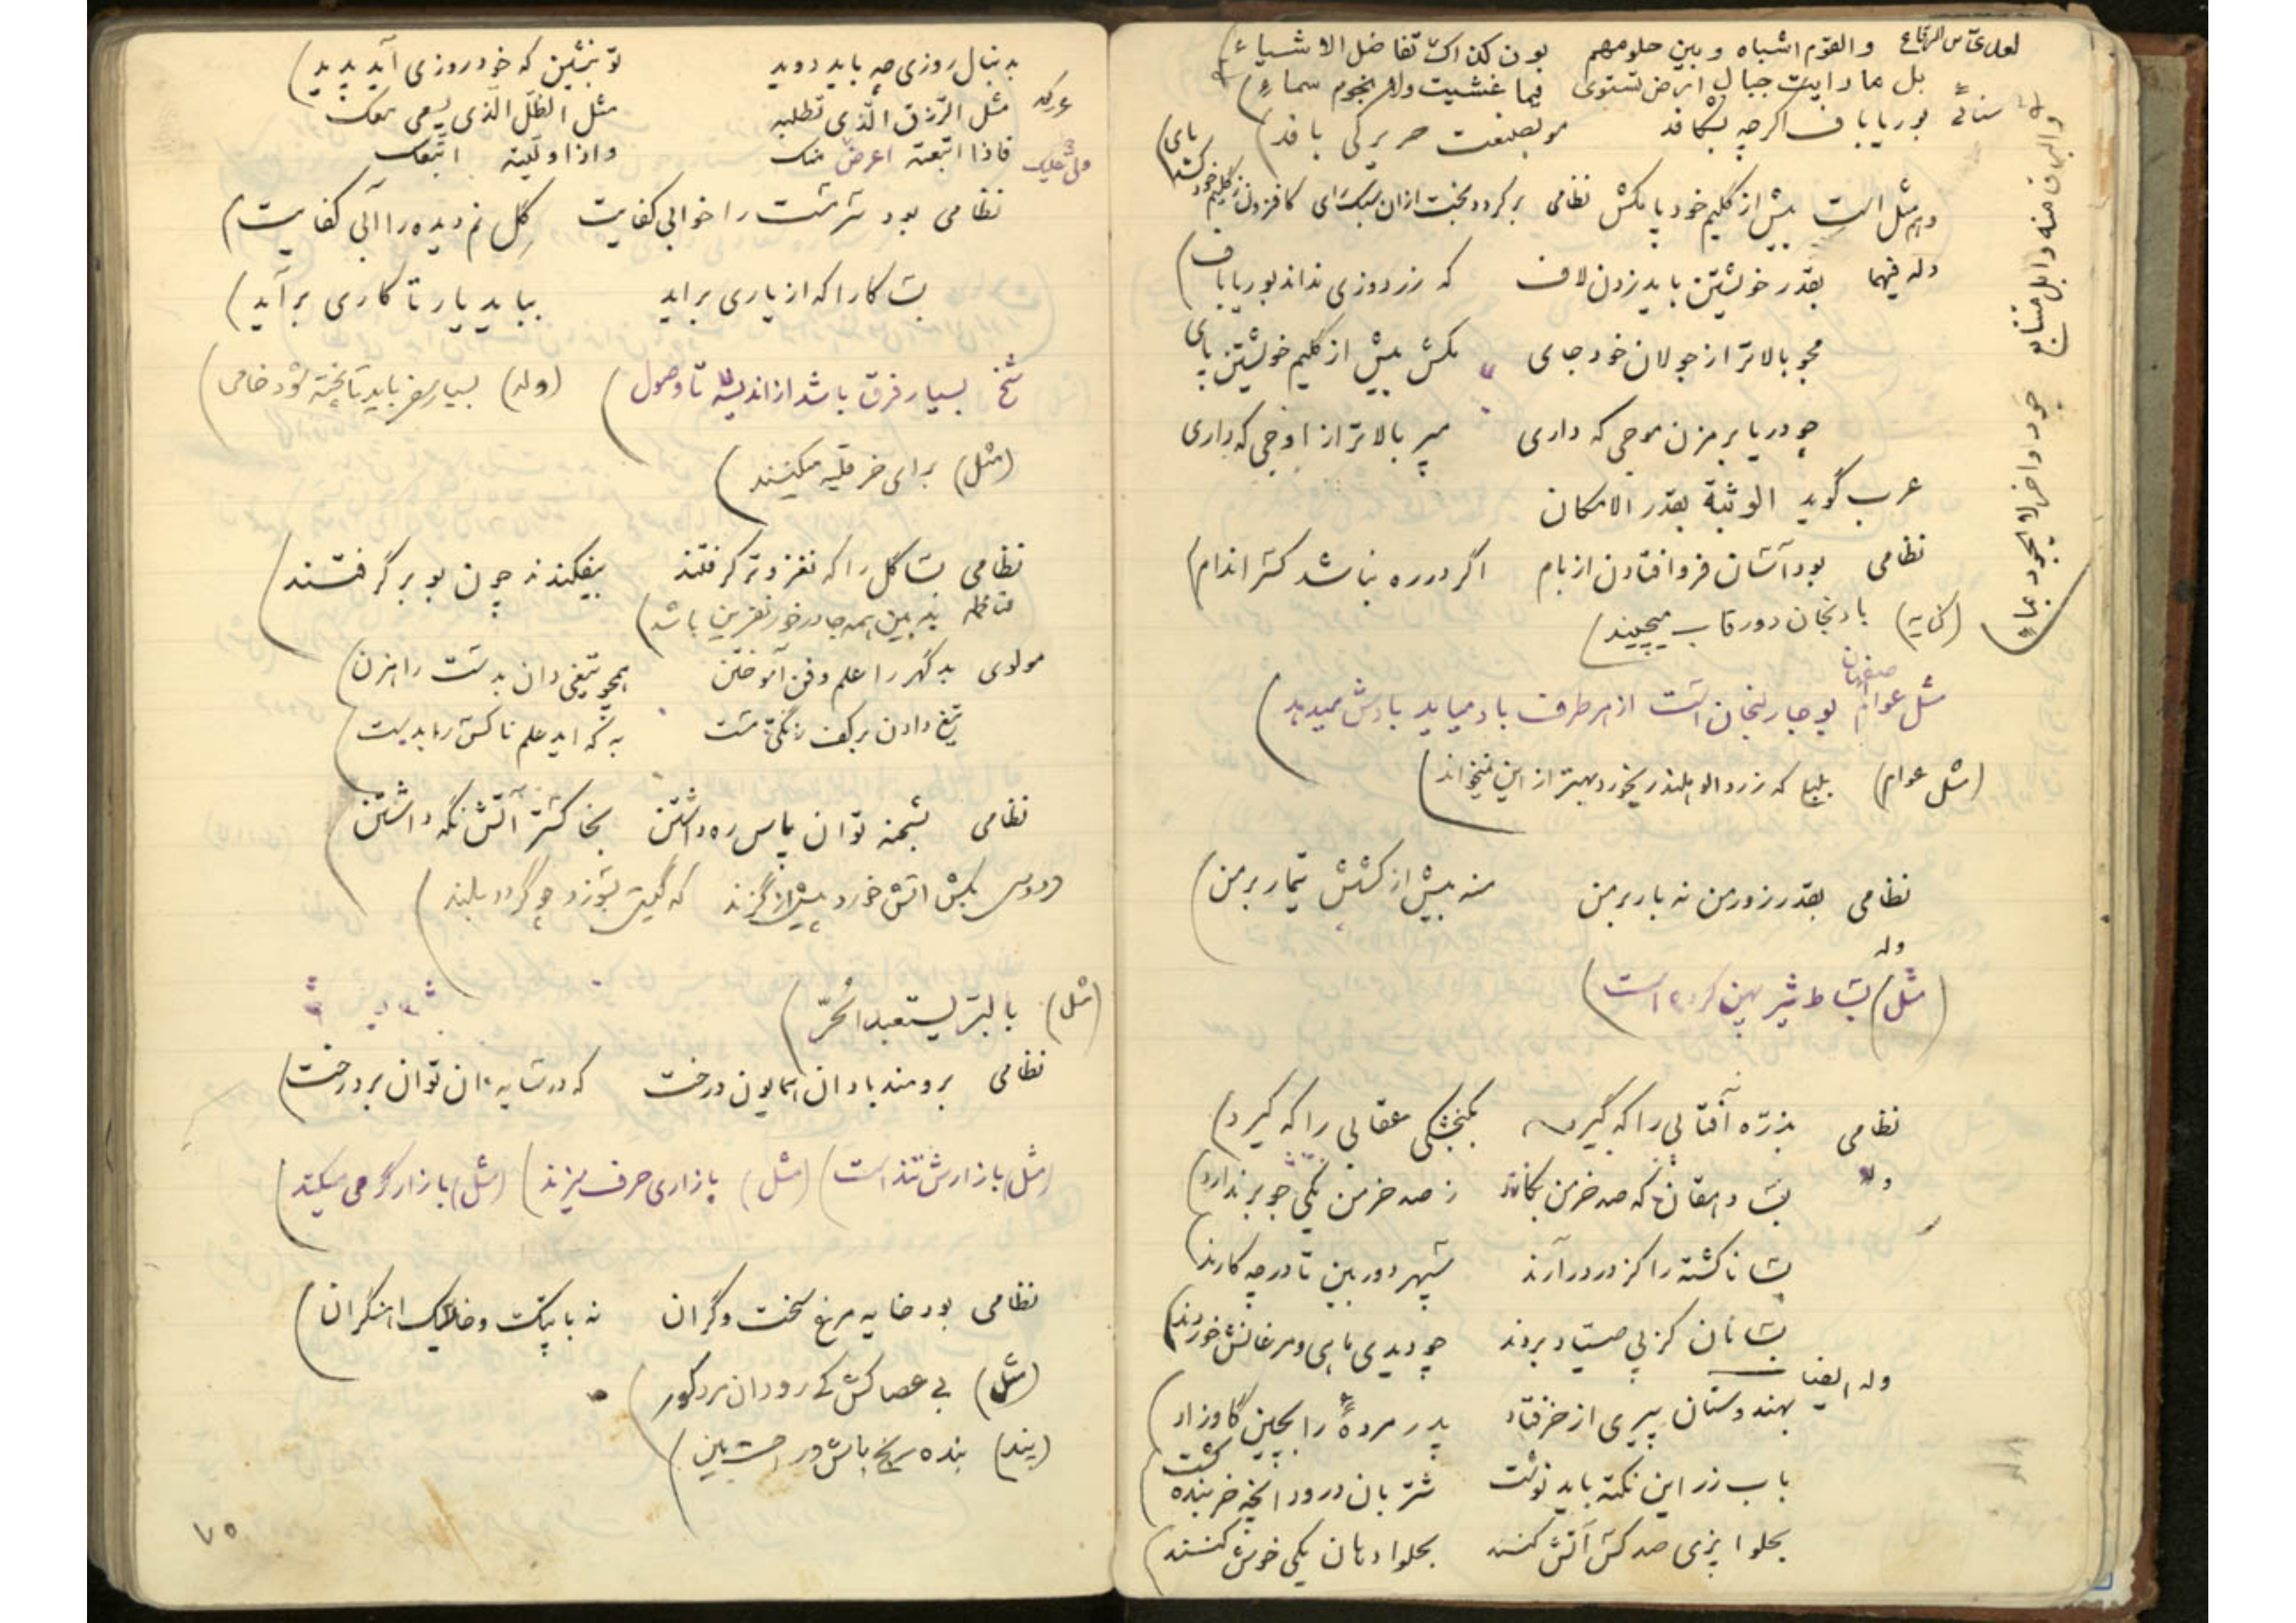 والقوم اشباه و بین حلومهم بون کذاک تفاضل الاشیاء
بل ما رایت جبال ارض تستوی فیما غشیت ولا نجوم سماء
سنائی بوریاباف اگرچه بشکافد مو بصنعت حریر کی بافد
و هم مثل است بیش از گلیم خود پا مکش نظامی برگردد بخت از آن سبک رای کافزون ز گلیم خود کشد پای
وله فیهما بقدر خویشتن باید زدن لاف که زردوزی نداند بوریاباف
مجو بالاتر از جولان خود جای مکش بیش از گلیم خویشتن پای
چو دریا بر مزن موجی که داری مپر بالاتر از اوجی که داری
عرب گوید الوثبة بقدر الامکان
نظامی بود آسان فرو افتادن از بام اگر در ره نباشد کسر اندام
(کنایه) بادنجان دور قاب میچیند
مثل عوام اصفهان بوجار لنجان است از هر طرف باد میاید بادش میدهد
(مثل عوام) بلبل که زردالو هلندر بخورد بهتر از این نمیخواند
نظامی بقدر زور من نه بار بر من منه بیش از کشش تیمار بر من
وله
(مثل) بساط شیر پهن کرده است
نظامی بذره آفتابی را که گیرد بگنجشکی عقابی را که گیرد
وله بسا دهقان که صد خرمن بکارد ز صد خرمن یکی جو بر ندارد
بسا ناکشته را کز در درآرند سپهر دور بین تا در چه کارند
بسانان کز پی صیاد بردند چو دیدی ماهی و مرغانش خوردند
وله ایضا بهندوستان پیری از خر فتاد پدر مرده را بچین گاو زاد
باب زر این نکته باید نوشت شتربان درود آنچه خربنده کشت
بحلوا پزی صد کس آتش کنند بحلوا دهان یکی خوش کنند
والبرق منه وابل متتابع جود وآخر لا یجود بماء
بدنبال روزی چه باید دوید تو بنشین که خود روزی آید پدید
مثل الرزق الذی تطلبه مثل الظل الذی یسعی معک
فاذا اتبعته اعرض عنک واذا ولیته اتبعک
نظامی بود سرمست را خوابی کفایت گل نم دیده را آبی کفایت
بسا کارا که از یاری برآید بباید یار تا کاری برآید
شیخ بسیار فرق باشد از اندیشه تا وصول (وله) بسیار سفر باید تا پخته شود خامی
(مثل) برای خر قلیه میکنند
نظامی بسا گل را که نغز و تر گرفتند بیفکندند چون بو بر گرفتند
بد ببین همه جا در خور نفرین باشد
مولوی بدگهر را علم و فن آموختن همچو تیغی دان بدست راهزن
تیغ دادن بر کف زنگی مست به که آید علم ناکس را بدست
نظامی بشحنه توان پاس ره داشتن بخاکستر آتش نگه داشتن
فردوسی بکش آتش خورد پیش از گزند که گیتی بسوزد چو گردد بلند
(مثل) بالبر یستعبد الحر
نظامی برومند باد آن همایون درخت که در سایه آن توان برد رخت
(مثل) بازارش تند است (مثل) بازاری حرف میزند (مثل) بازار گرمی میکند
نظامی بود خایه مرغ سخت و گران نه با پتک و خایسک آهنگران
(مثل) بی عصاکش کی رود آن مرد کور
(پند) بنده رنج باش و راحت بین
۷۵